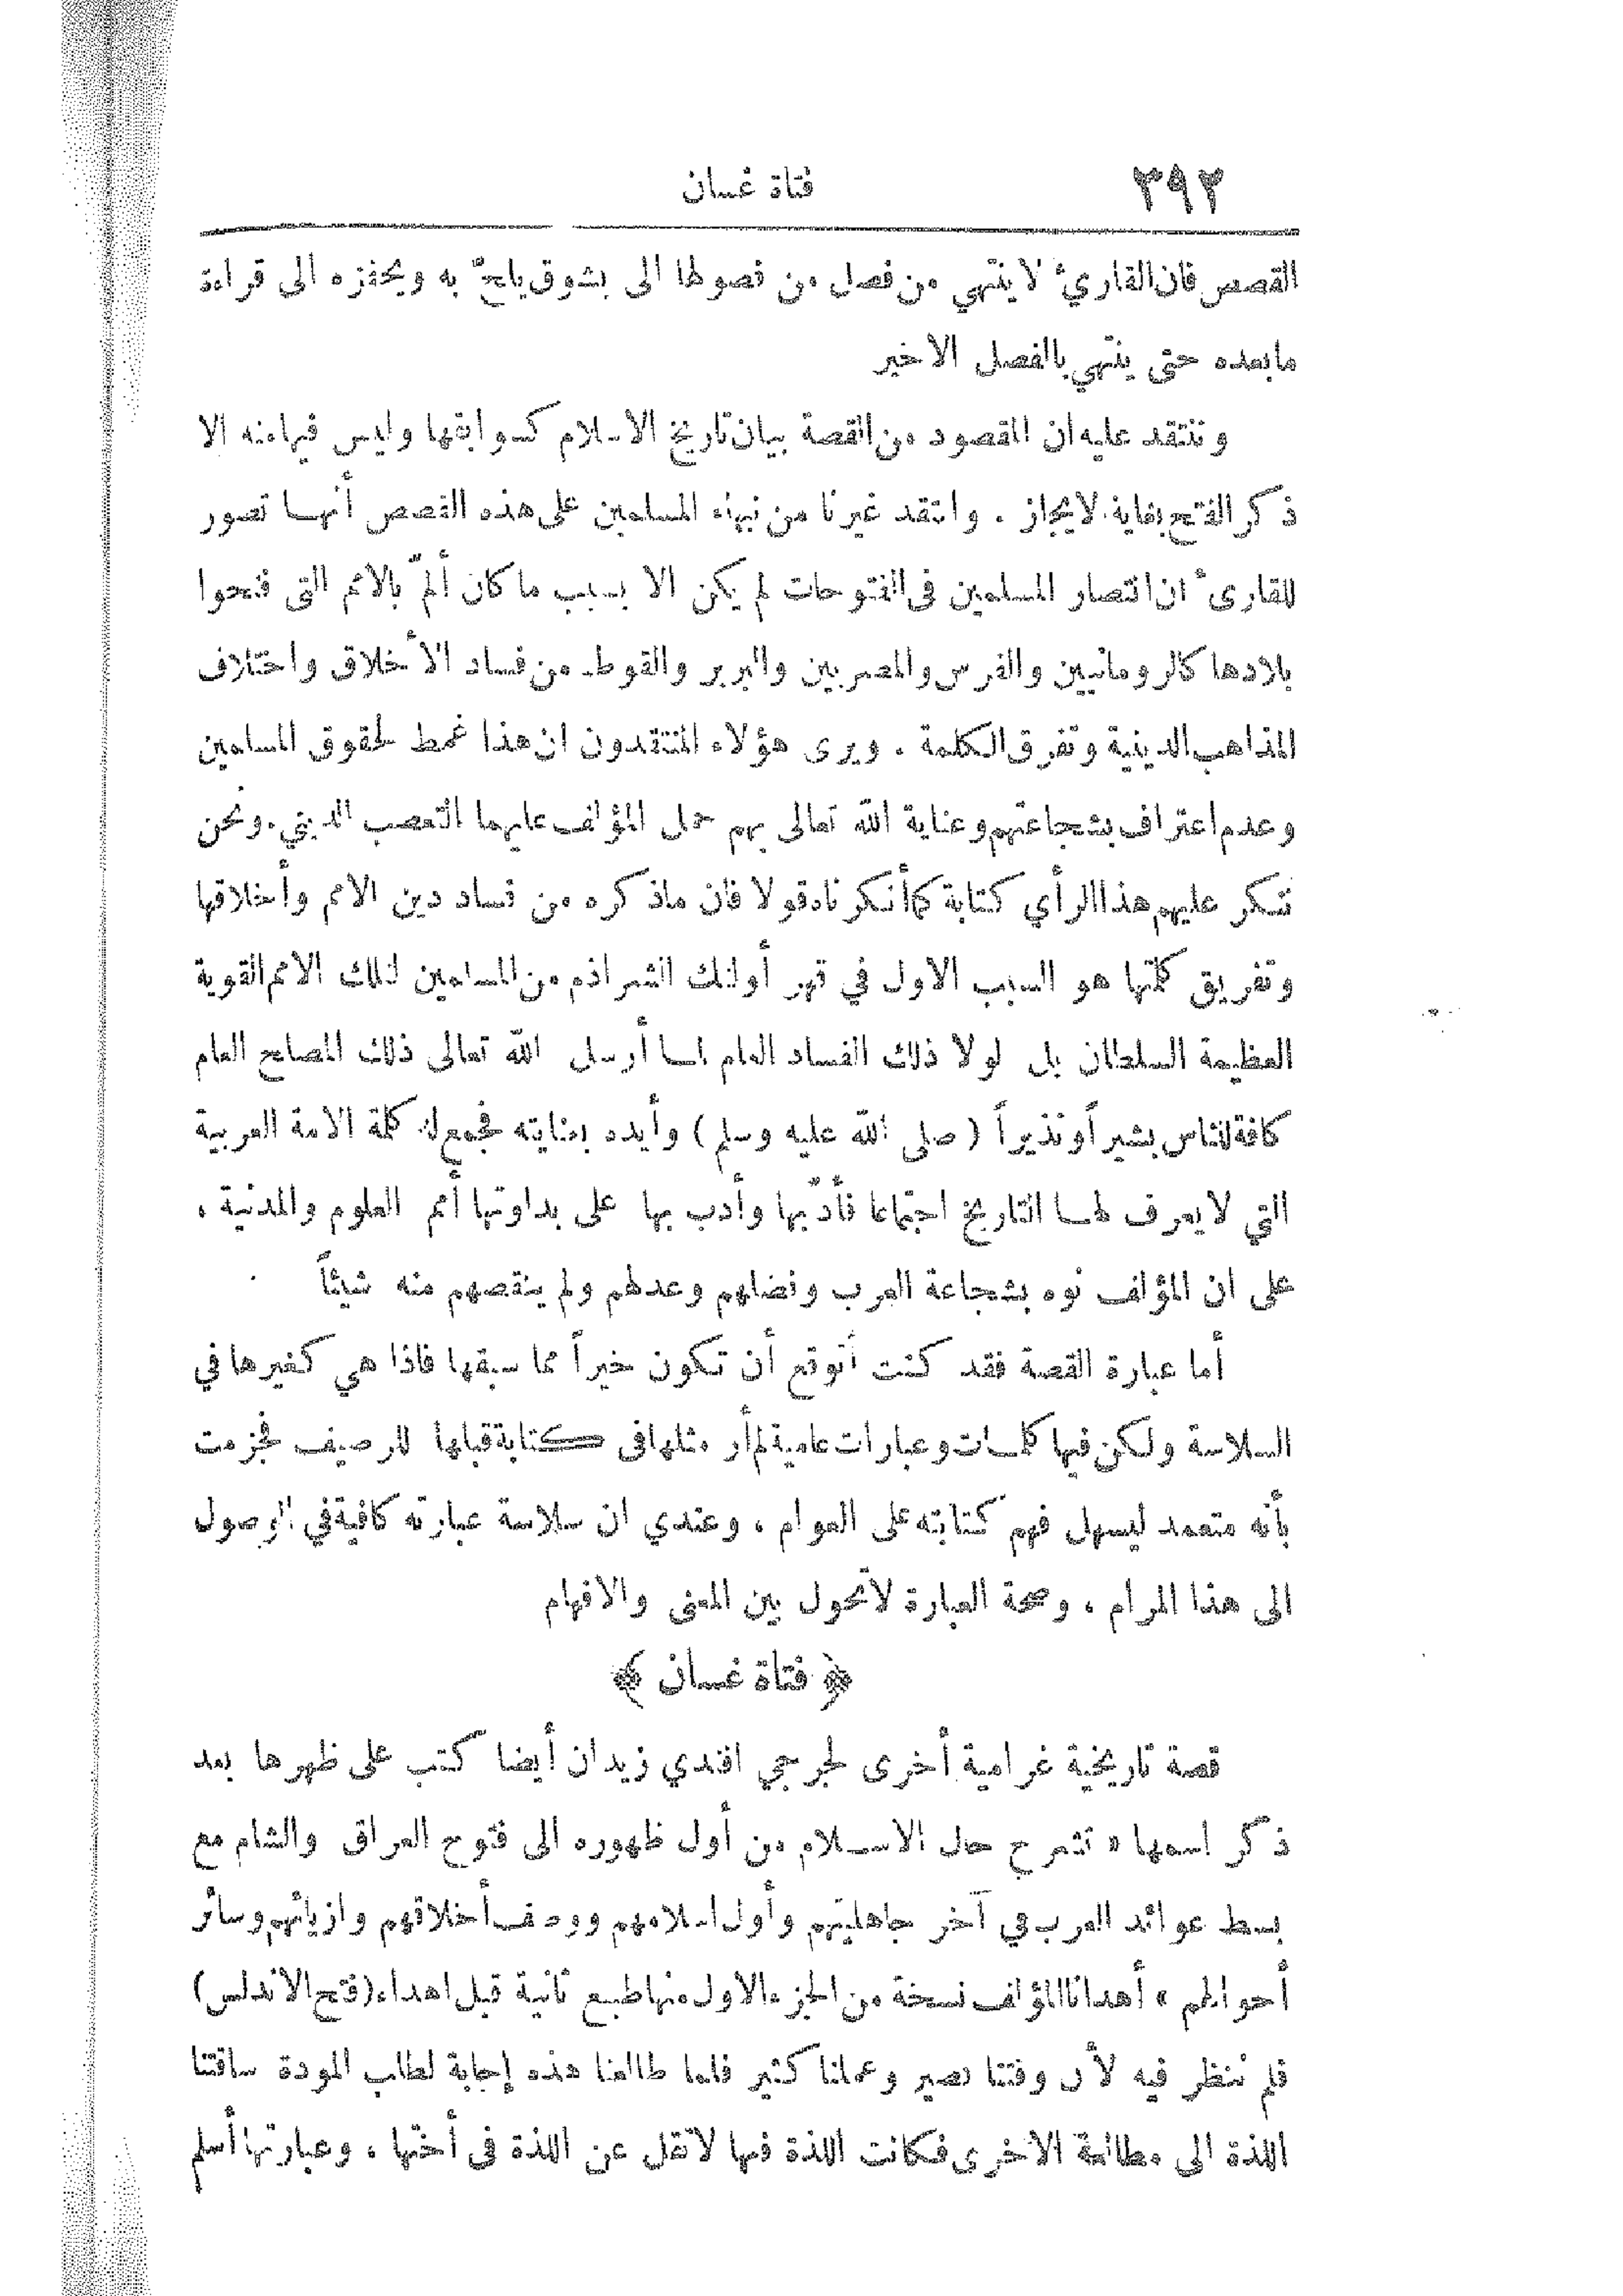 ٣٩٢
فتاة غسان
القصص فان القارئ لا ينتهي من فصل من فصولها الى بشوق يلحّ به ويحفزه الى قراءة
ما بعده حتى ينتهي بالفصل الاخير
وننتقد عليه ان المقصود من القصة بيان تاريخ الاسلام كسوابقها وليس فيها منه الا
ذكر الفتح بغاية الايجاز . وانتقد غيرنا من نبهاء المسلمين على هذه القصص أنهـا تصور
للقارئ ان انتصار المسلمين في الفتوحات لم يكن الا بسبب ما كان ألمّ بالامم التي فتحوا
بلادها كالرومانيين والفرس والمصريين والبربر والقوط من فساد الأخلاق واختلاف
المذاهب الدينية وتفرق الكلمة . ويرى هؤلاء المنتقدون ان هذا غمط لحقوق المسلمين
وعدم اعتراف بشجاعتهم وعناية الله تعالى بهم حمل المؤلف عليهما التعصب الديني . ونحن
ننكر عليهم هذا الرأي كتابة كما أنكرناه قولا فان ماذكره من فساد دين الامم وأخلاقها
وتفريق كلمتها هو السبب الاول في قهر أولئك الشراذم من المسلمين لتلك الامم القوية
العظيمة السلطان بل لولا ذلك الفساد العام لمـا أرسل الله تعالى ذلك المصلح العام
كافة للناس بشيراً ونذيراً ( صلى الله عليه وسلم ) وأيده بعنايته فجمع له كلمة الامة العربية
التي لا يعرف لهـا التاريخ اجتماعا فأدّبها وأدب بها على بداوتها أمم العلوم والمدنية ،
على ان المؤلف نوه بشجاعة العرب وفضلهم وعدلهم ولم ينقصهم منه شيئاً
أما عبارة القصة فقد كنت أتوقع أن تكون خيراً مما سبقها فاذا هي كغيرها في
السلاسة ولكن فيها كلمـات وعبارات عامية لم أر مثلها في كتابة قبلها للرصيف فجزمت
بأنه متعمد ليسهل فهم كتابته على العوام ، وعندي ان سلاسة عبارته كافية في الوصول
الى هذا المرام ، وصحة العبارة لاتحول بين المعنى والافهام
﴿ فتاة غسان ﴾
قصة تاريخية غرامية أخرى لجرجي افندي زيدان أيضا كتب على ظهرها بعد
ذكر اسمها « تشرح حال الاسـلام من أول ظهوره الى فتوح العراق والشام مع
بسط عوائد العرب في آخر جاهليتهم وأول اسلامهم ووصف أخلاقهم وازيائهم وسائر
أحوالهم » أهدانا المؤلف نسخة من الجزء الاول منها طبع ثانية قبل اهداء (فتح الاندلس)
فلم ننظر فيه لأن وقتنا قصير وعملنا كثير فلما طالعنا هذه إجابة لطلب المودة ساقتنا
اللذة الى مطالعة الاخرى فكانت اللذة فيها لاتقل عن اللذة في أختها ، وعبارتها أسلم